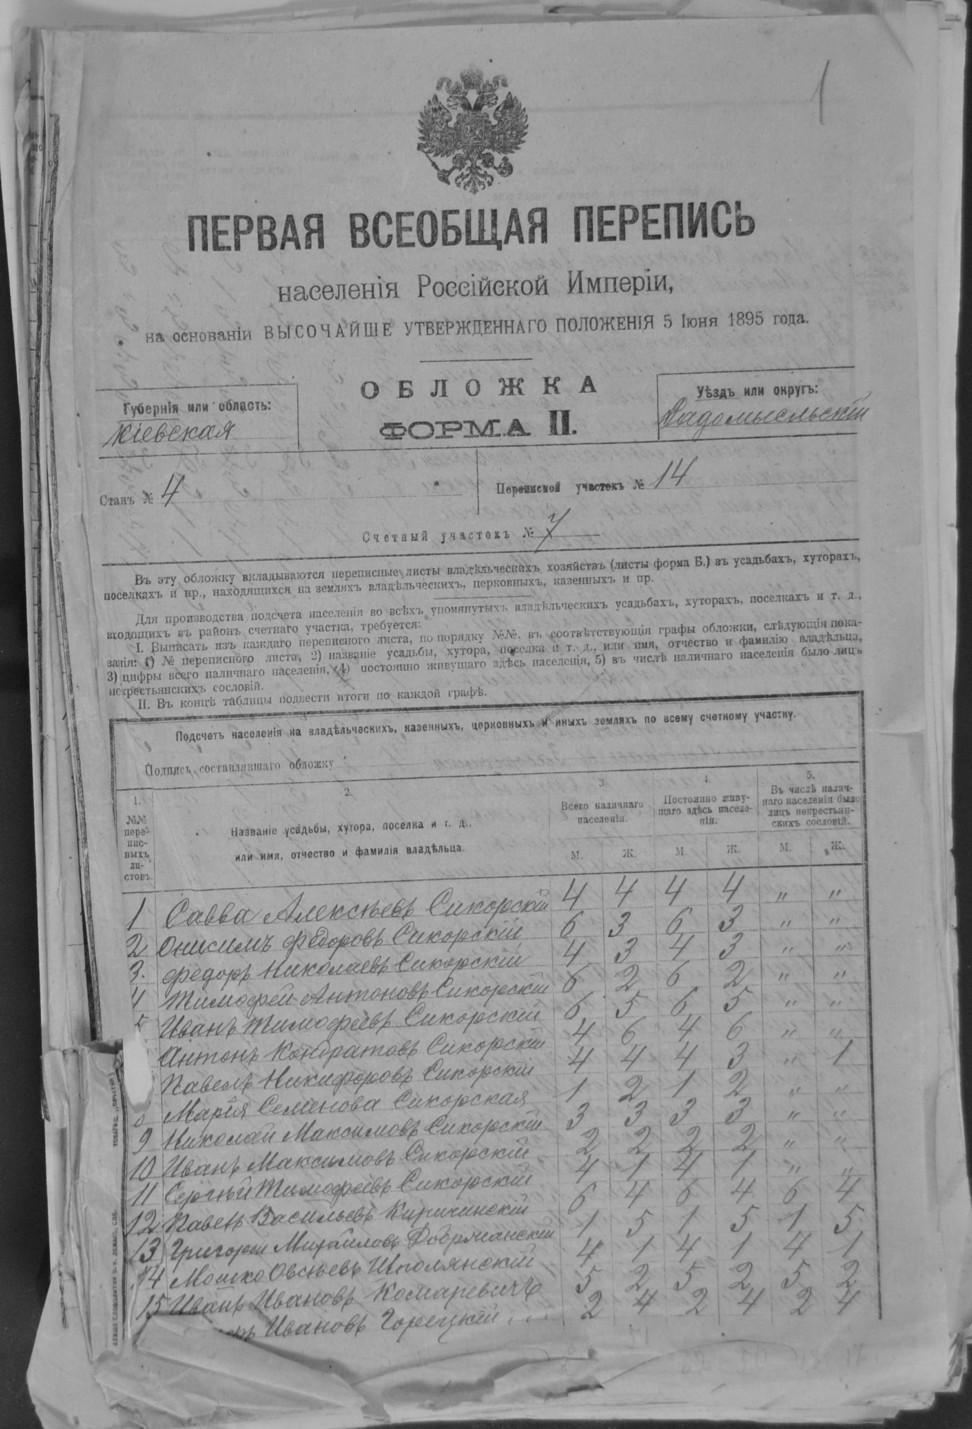 1
ПЕРВАЯ ВСЕОБЩАЯ ПЕРЕПИСЬ
населенія Россійской Имперіи,
на основаніи ВЫСОЧАЙШЕ УТВЕРЖДЕННАГО ПОЛОЖЕНІЯ 5 Іюня 1895 года.
ОБЛОЖКА
ФОРМА II.
Губернія или область:
Кіевская
Уѣздъ или округъ:
Радомысльскій
Станъ № 4
Переписной участокъ № 14
Счетный участокъ № 7
Въ эту обложку вкладываются переписные листы владѣльческихъ хозяйствъ (листы форма Б.) въ усадьбахъ, хуторахъ,
поселкахъ и пр., находящихся на земляхъ владѣльческихъ, церковныхъ, казенныхъ и пр.
Для производства подсчета населенія во всѣхъ упомянутыхъ владѣльческихъ усадьбахъ, хуторахъ, поселкахъ и т. д.,
входящихъ въ районъ счетнаго участка, требуется:
I. Выписать изъ каждаго переписного листа, по порядку №№, въ соотвѣтствующія графы обложки, слѣдующія пока-
занія: 1) № переписного листа, 2) названіе усадьбы, хутора, поселка и т. д., или имя, отчество и фамилію владѣльца,
3) цифры всего наличнаго населенія, 4) постоянно живущаго здѣсь населенія, 5) въ числѣ наличнаго населенія было лицъ
некрестьянскихъ сословій.
II. Въ концѣ таблицы подвести итоги по каждой графѣ.
Подсчетъ населенія на владѣльческихъ, казенныхъ, церковныхъ и иныхъ земляхъ по всему счетному участку.
Подпись составлявшаго обложку
1. 2. 3. 4. 5.
№№ перепис-ныхъ ли-стовъ.
Названіе усадьбы, хутора, поселка и т. д.,
или имя, отчество и фамилія владѣльца.
Всего наличнаго населенія.
Постоянно живу-щаго здѣсь населе-нія.
Въ числѣ налич-наго населенія было лицъ некрестьян-скихъ сословій.
М. Ж. М. Ж. М. Ж.
1 Савва Алексѣевъ Сикорскій 4 4 4 4 " "
2 Онисимъ Федоровъ Сикорскій 6 3 6 3 " "
3. Федоръ Николаевъ Сикорскій 4 3 4 3 " "
4 Тимофей Антоновъ Сикорскій 6 2 6 2 " "
5 Иванъ Тимофеевъ Сикорскій 6 5 6 5 " "
Антонъ Кондратовъ Сикорскій 4 6 4 6 " "
Павелъ Никифоровъ Сикорскій 4 4 4 3 " 1
8 Марія Семенова Сикорская 1 2 1 2 " "
9 Николай Максимовъ Сикорскій 3 3 3 3 " "
10 Иванъ Максимовъ Сикорскій 2 2 2 2 " "
11 Сергѣй Тимофеевъ Сикорскій 4 1 4 1 " "
12 Павелъ Васильевъ Киричинскій 6 4 6 4 6 4
13 Григорій Михайловъ 1 5 1 5 1 5
14 Мошко Овсѣевъ 4 1 4 1 4 1
15 Иванъ Ивановъ Комаревичъ 5 2 5 2 5 2
Ивановъ Горецкій 2 4 2 4 2 4